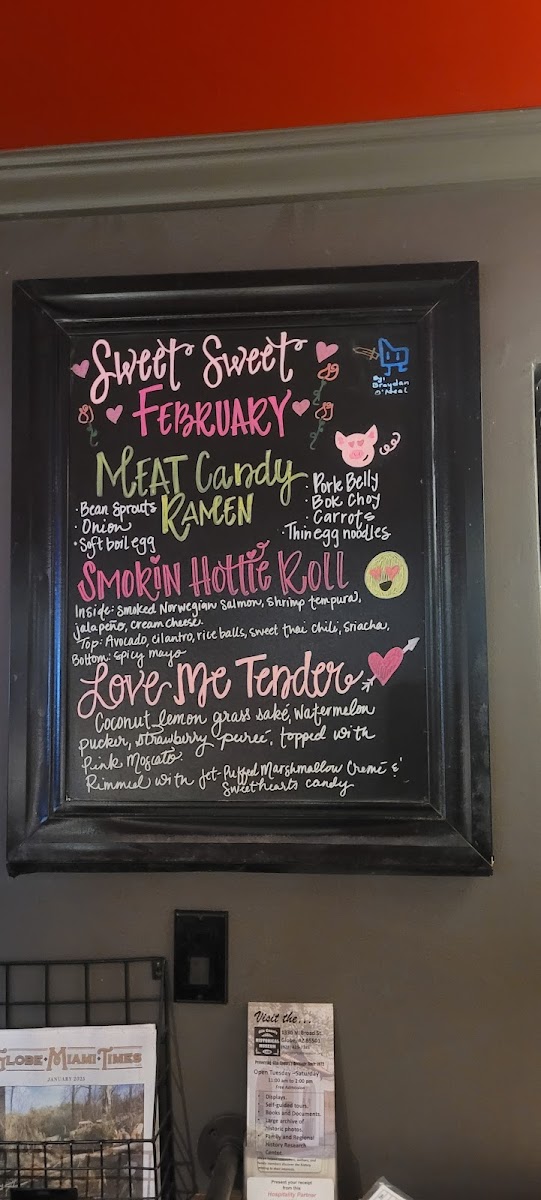 Sweet Sweet
February
By:
Braydan
O'Neal
Meat Candy
Ramen
· Bean Sprouts
· Onion
· Soft boil egg
· Pork Belly
· Bok Choy
· Carrots
· Thin egg noodles
Smokin Hottie Roll
Inside: smoked Norwegian Salmon, shrimp tempura,
jalapeño, cream cheese.
Top: Avocado, cilantro, rice balls, sweet thai chili, sriacha,
Bottom: spicy mayo
Love Me Tender
Coconut lemon grass saké, watermelon
pucker, strawberry pureé, topped with
Pink Moscato.
Rimmed with Jet-Puffed Marshmallow Creme &
Sweethearts candy
Globe·Miami Times
JANUARY 2023
Visit the...
HISTORICAL
MUSEUM
Globe, AZ 85501
Open Tuesday – Saturday
11:00 am to 2:00 pm
Free Admission
· Displays.
· Self-guided tours.
· Books and Documents.
· Large archive of
historic photos.
· Family and Regional
History Research
Center.
Present your receipt
from this
Hospitality Partner